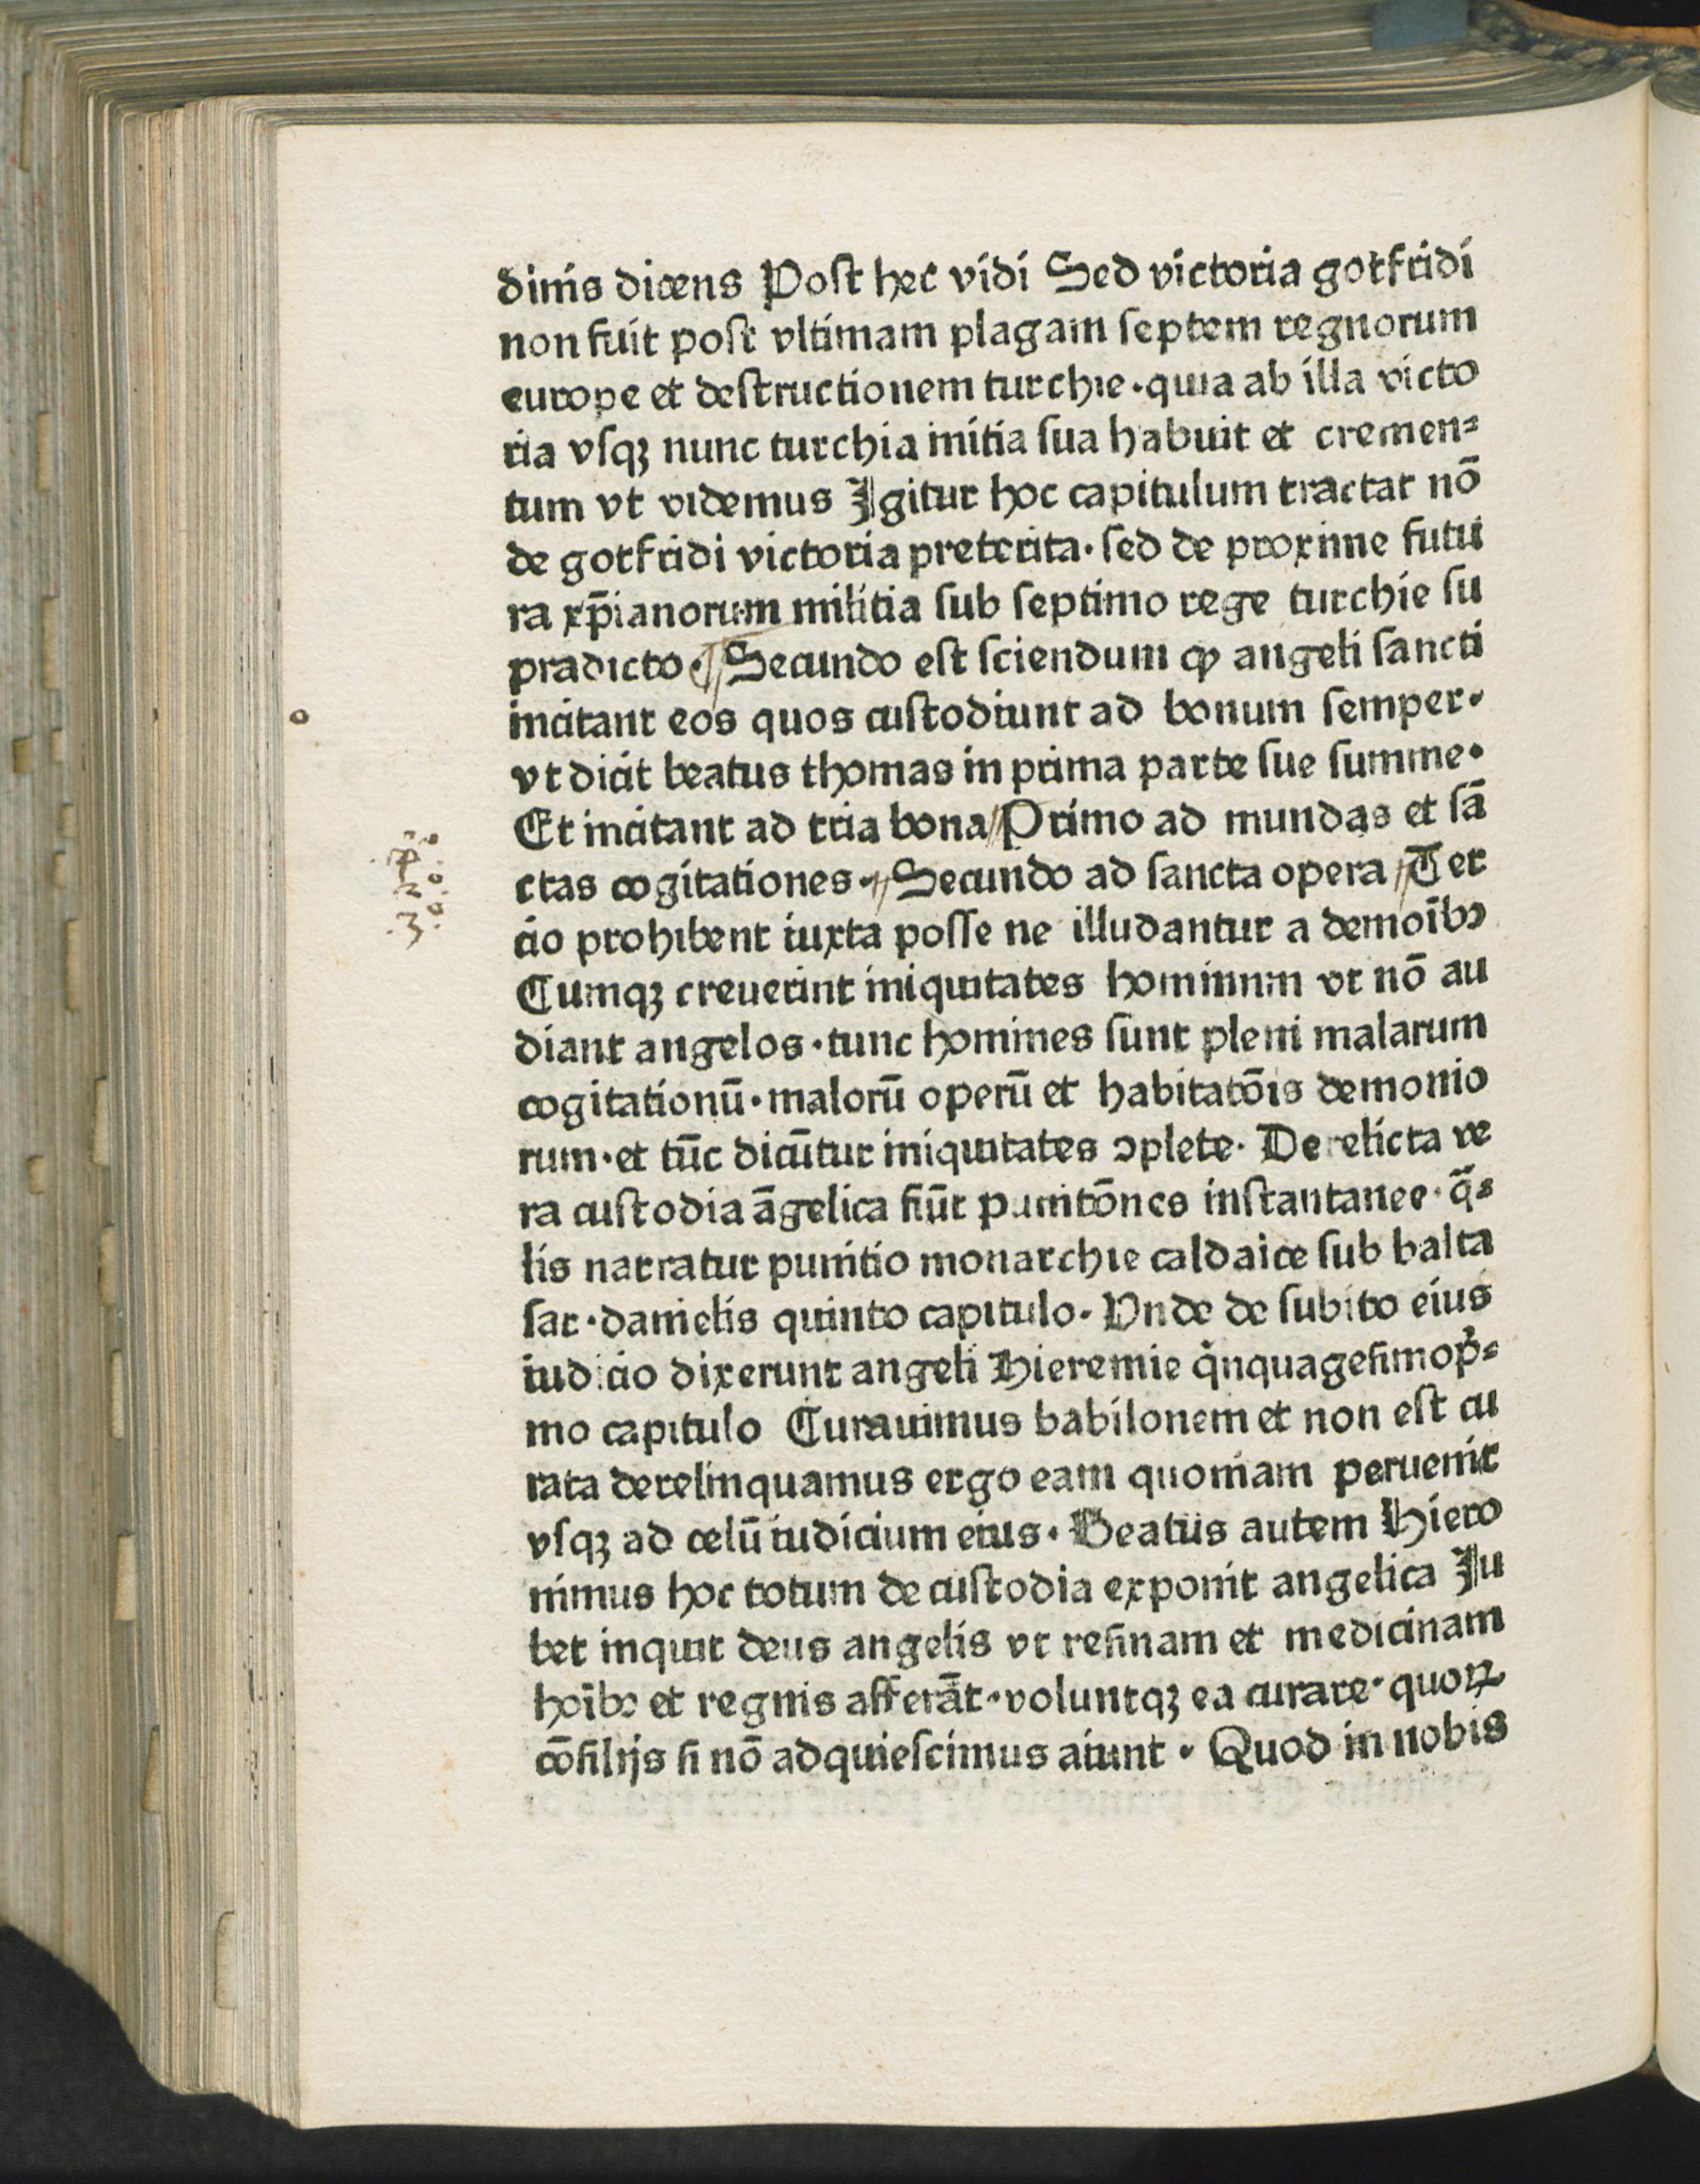 dinis dicens Poſt hec vidi Sed victoria gotfridi
non fuit poſt vltimam plagam ſeptem regnorum
europe et deſtructionem turchie·quia ab illa victo
ria vſqꝫ nunc turchia initia ſua habuit et cremen⸗
tum vt videmus Igitur hoc capitulum tractat nō
de gotfridi victoria preterita·ſed de proxime futu
ra xp̄ianorum militia ſub ſeptimo rege turchie ſu
pradicto·¶ Secundo eſt ſciendum ꝙ angeli ſancti
incitant eos quos cuſtodiunt ad bonum ſemper·
vt dicit beatus thomas in prima parte ſue ſumme·
Et incitant ad tria bona//Primo ad mundas et ſā
pº
ctas cogitationes·//Secundo ad ſancta opera//Ter
2º
cio prohibent iuxta poſſe ne illudantur a demoībꝰ
3º
Cumqꝫ creuerint iniquitates hominum vt nō au
diant angelos·tunc homines ſunt pleni malarum
cogitationū·malorū operū et habitatōis demonio
rum·et tūc dicūtur iniquitates ꝯplete·Derelicta ve
ra cuſtodia āgelica fiūt punitōnes inſtantanee·q̄⸗
lis narratur punitio monarchie caldaice ſub balta
ſar·danielis quinto capitulo·Vnde de ſubito eius
iudicio dixerunt angeli Hieremie qͥnquageſimopͥ⸗
mo capitulo Curauimus babilonem et non eſt cu
rata derelinquamus ergo eam quoniam peruenit
vſqꝫ ad celū iudicium eius·Beatus autem Hiero
nimus hoc totum de cuſtodia exponit angelica Iu
bet inquit deus angelis vt reſinam et medicinam
hoībꝰ et regnis afferāt·voluntqꝫ ea curare·quoꝝ
cōſilijs ſi nō adquieſcimus aiunt·Quod in nobis